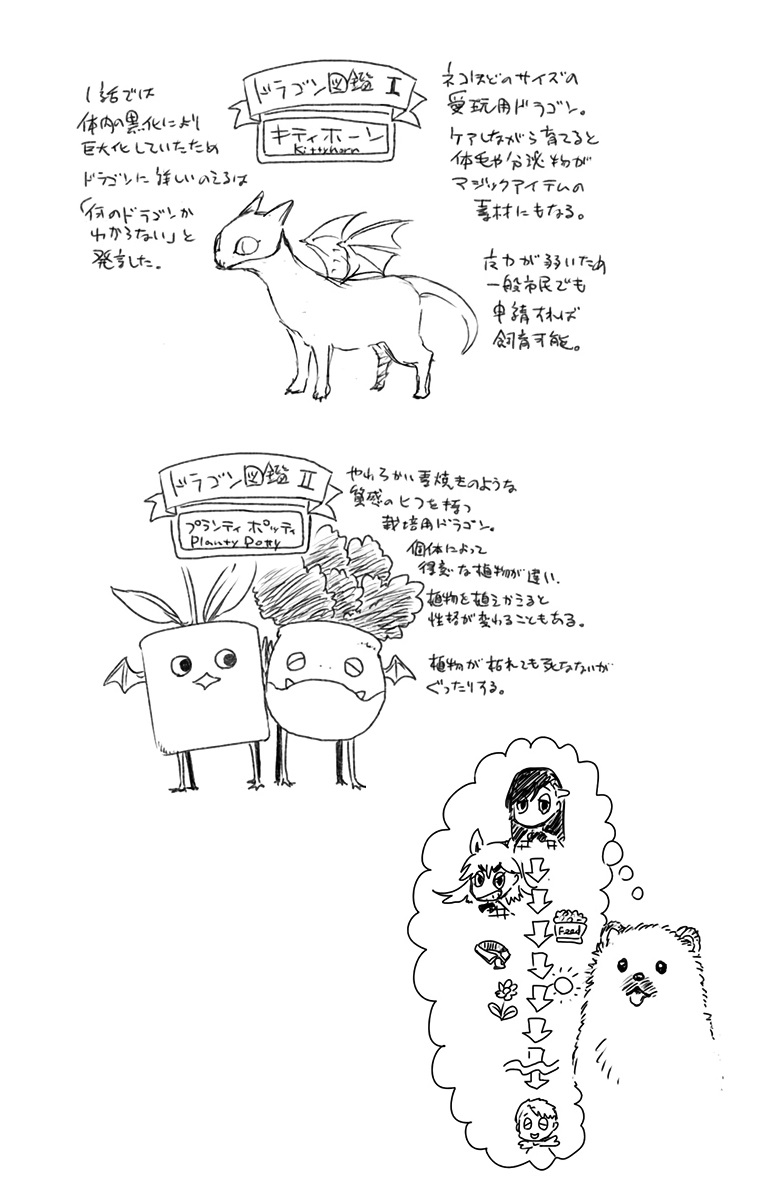 ドラゴン図鑑 I
キティホーン
Kittyhorn
ネコほどのサイズの
愛玩用ドラゴン。
ケアしながら育てると
体毛や分泌物が
マジックアイテムの
素材にもなる。
魔力が弱いため
一般市民でも
申請すれば
飼育可能。
1話では
体内の黒化により
巨大化していたため
ドラゴンに詳しいのえるは
「何のドラゴンか
わからない」と
発言した。
ドラゴン図鑑 II
プランティポッティ
Planty Potty
やわらかい素焼きのような
質感のヒフを持つ
栽培用ドラゴン。
個体によって
得意な植物が違い、
植物を植えかえると
性格が変わることもある。
植物が枯れても死なないが
ぐったりする。
Feed